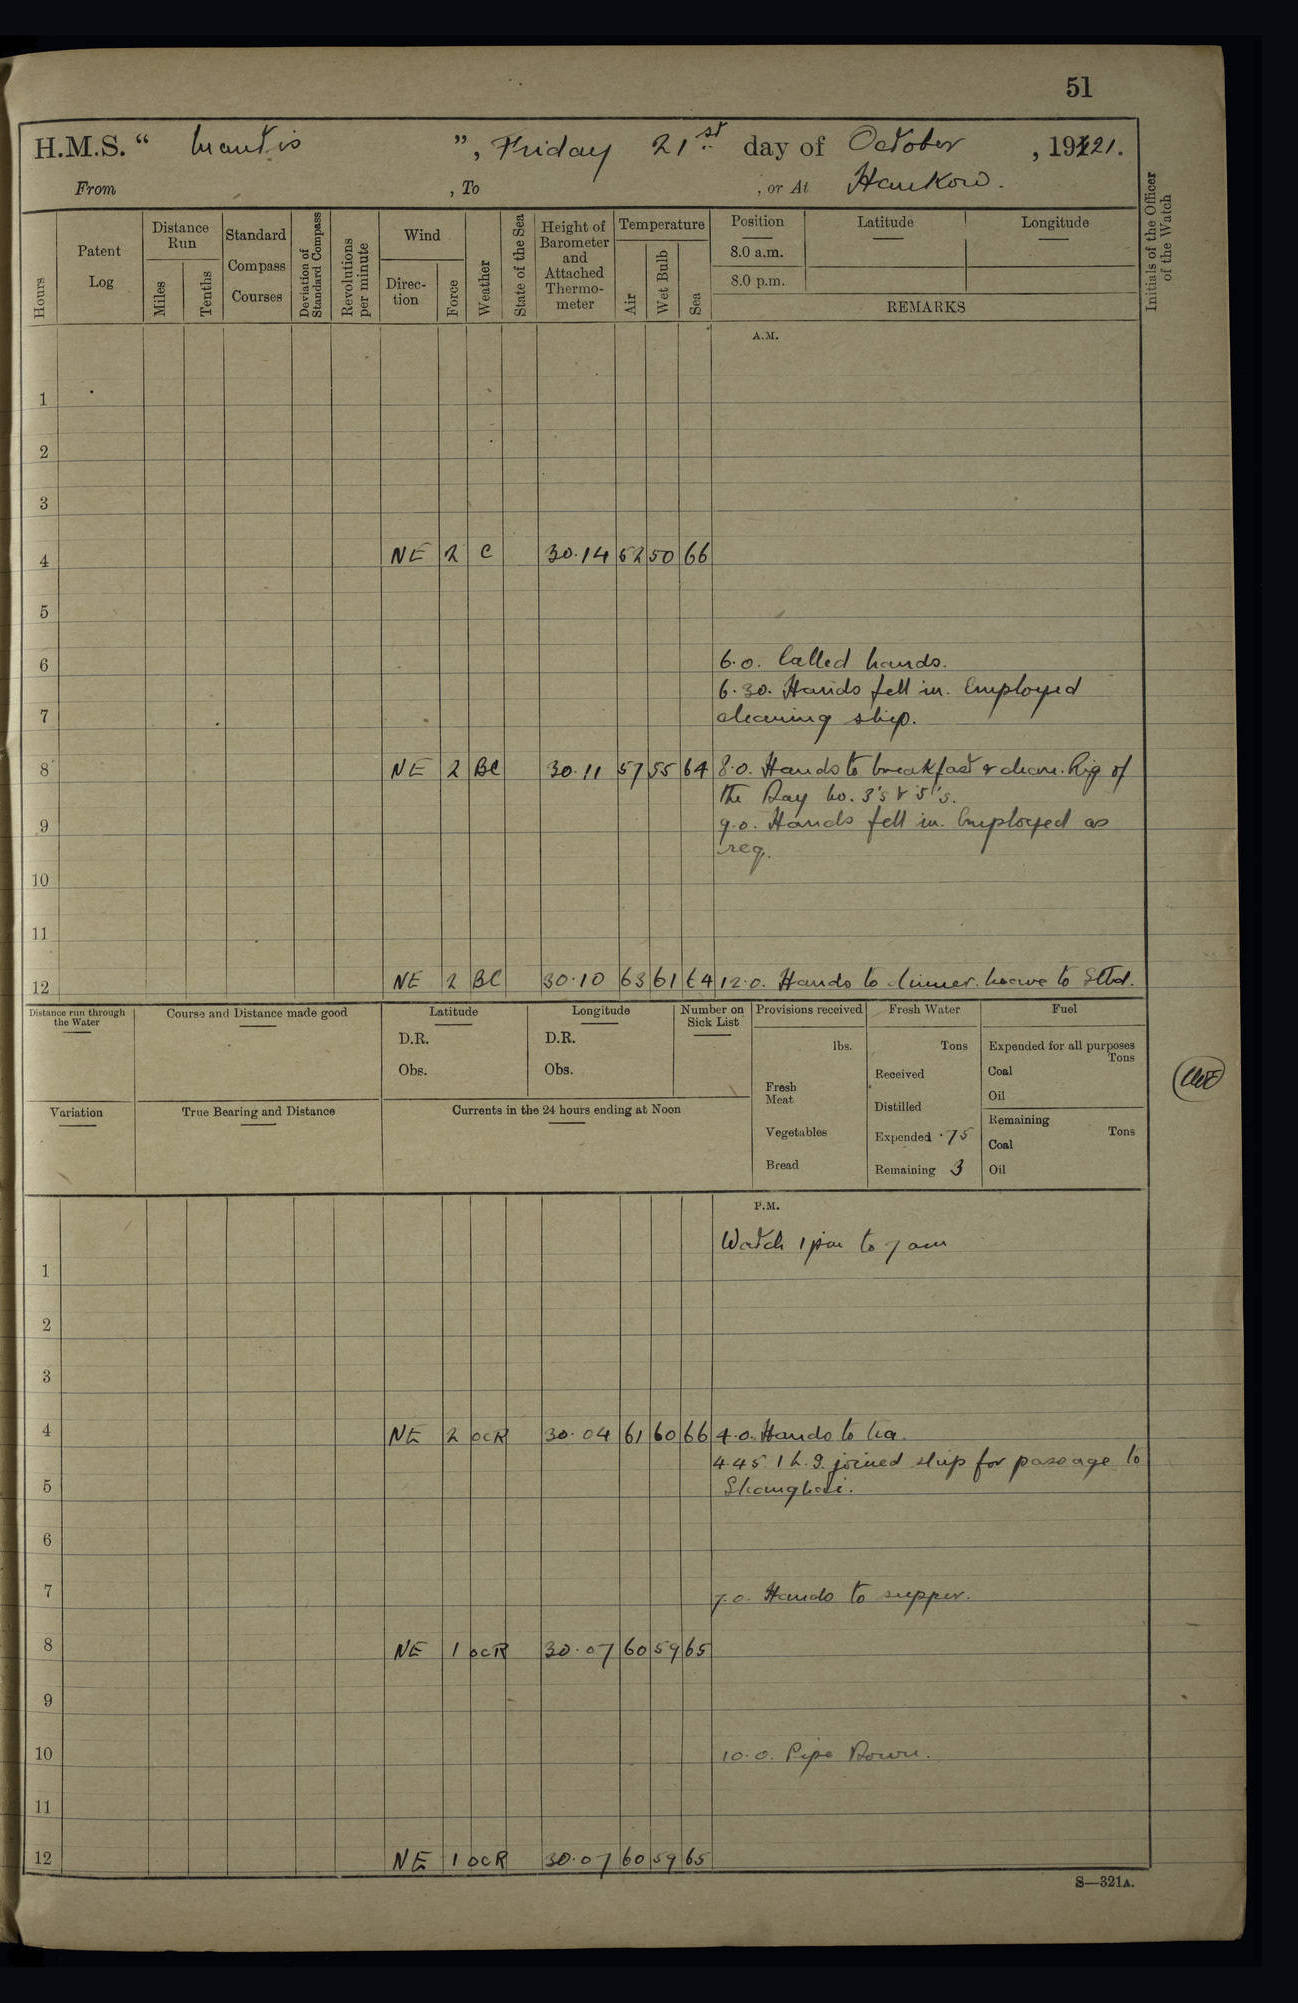 51
H.M.S. “ Mantis ”, Friday 21st day of October , 1921.
From , To , or At Hankow.
Hours
Patent Log
Distance Run
Miles
Tenths
Standard Compass Courses
Deviation of Standard Compass
Revolutions per minute
Wind
Direction
Force
Weather
State of the Sea
Height of Barometer and Attached Thermometer
Temperature
Air
Wet Bulb
Sea
Position
8.0 a.m.
8.0 p.m.
Latitude
Longitude
REMARKS
Initials of the Officer of the Watch
A.M.
1
2
3
4 NE 2 C 30.14 52 50 66
5
6 6.0. Called hands.
6.30. Hands fell in. Employed
7 cleaning ship.
8 NE 2 BC 30.11 57 55 64 8.0. Hands to breakfast & clean. Rig of
the Day No. 3's & 5's.
9 9.0. Hands fell in. Employed as
req.
10
11
12 NE 2 BC 30.10 63 61 64 12.0. Hands to dinner. Leave to Stbd.
Distance run through the Water
Course and Distance made good
Latitude
D.R.
Obs.
Longitude
D.R.
Obs.
Number on Sick List
Provisions received
lbs.
Fresh Meat
Vegetables
Bread
Fresh Water
Tons
Received
Distilled
Expended .75
Remaining 3
Fuel
Expended for all purposes
Tons
Coal
Oil
Remaining
Tons
Coal
Oil
Variation
True Bearing and Distance
Currents in the 24 hours ending at Noon
P.M.
Watch 1 pm to 7 am
1
2
3
4 NE 2 OCR 30.04 61 60 66 4.0. Hands to tea.
4.45 1 joined ship for passage to
5 Shanghai.
6
7 7.0. Hands to supper.
8 NE 1 OCR 30.07 60 59 65
9
10 10.0. Pipe Down.
11
12 NE 1 OCR 30.07 60 59 65
S—321A.